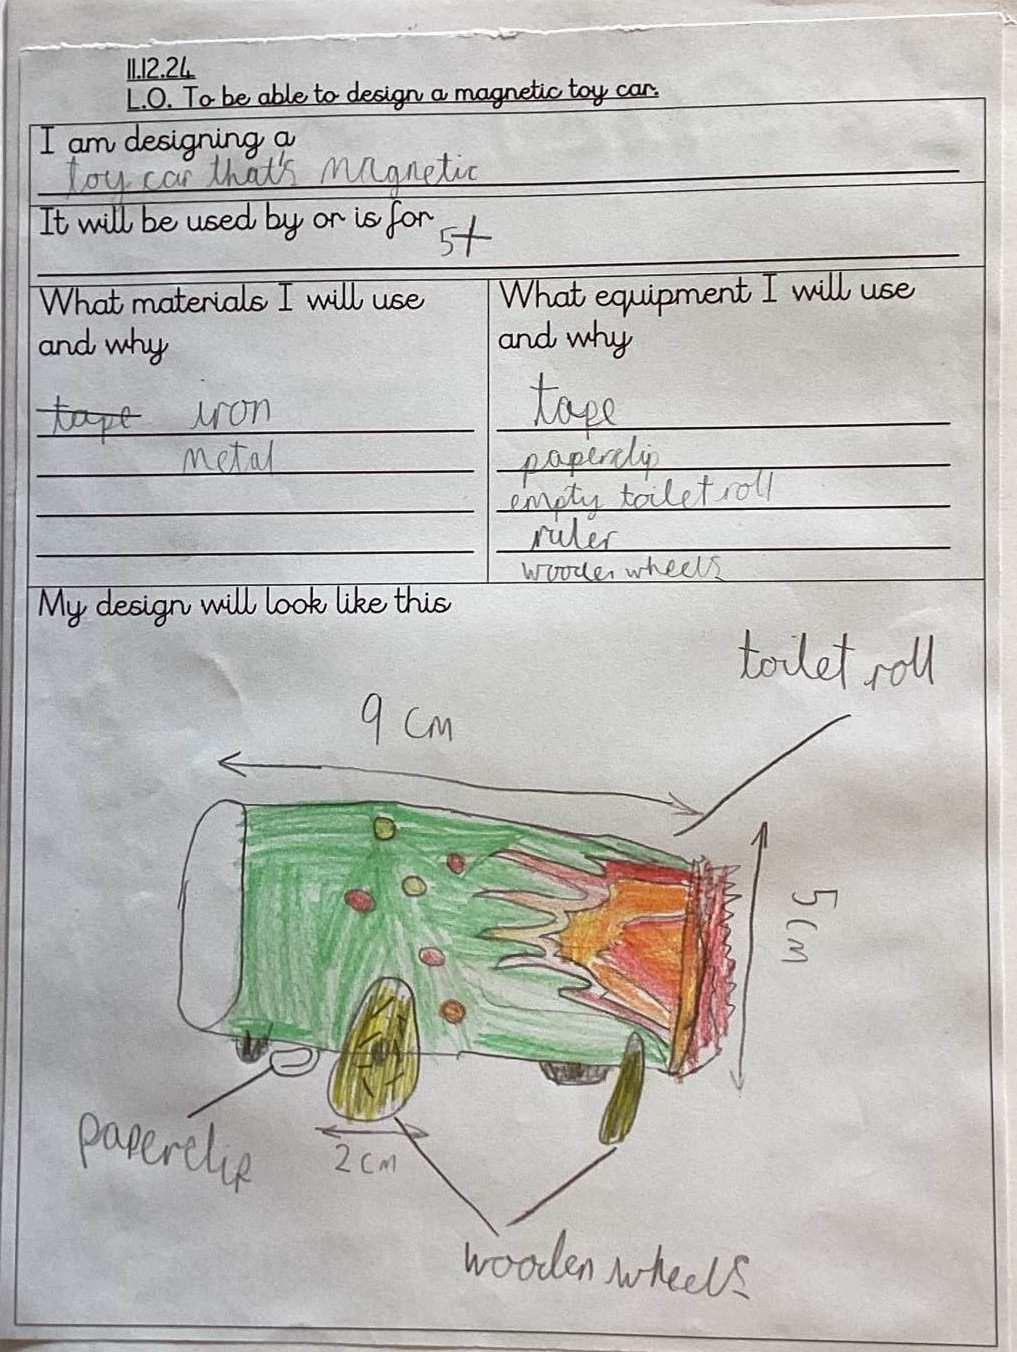 11.12.24
L.O. To be able to design a magnetic toy car.
I am designing a
toy car that's magnetic
It will be used by or is for
5+
What materials I will use
and why
tape iron
metal
What equipment I will use
and why
tape
paperclip
empty toilet roll
ruler
wooden wheels
My design will look like this
toilet roll
9 cm
5cm
paperclip
2cm
wooden wheels